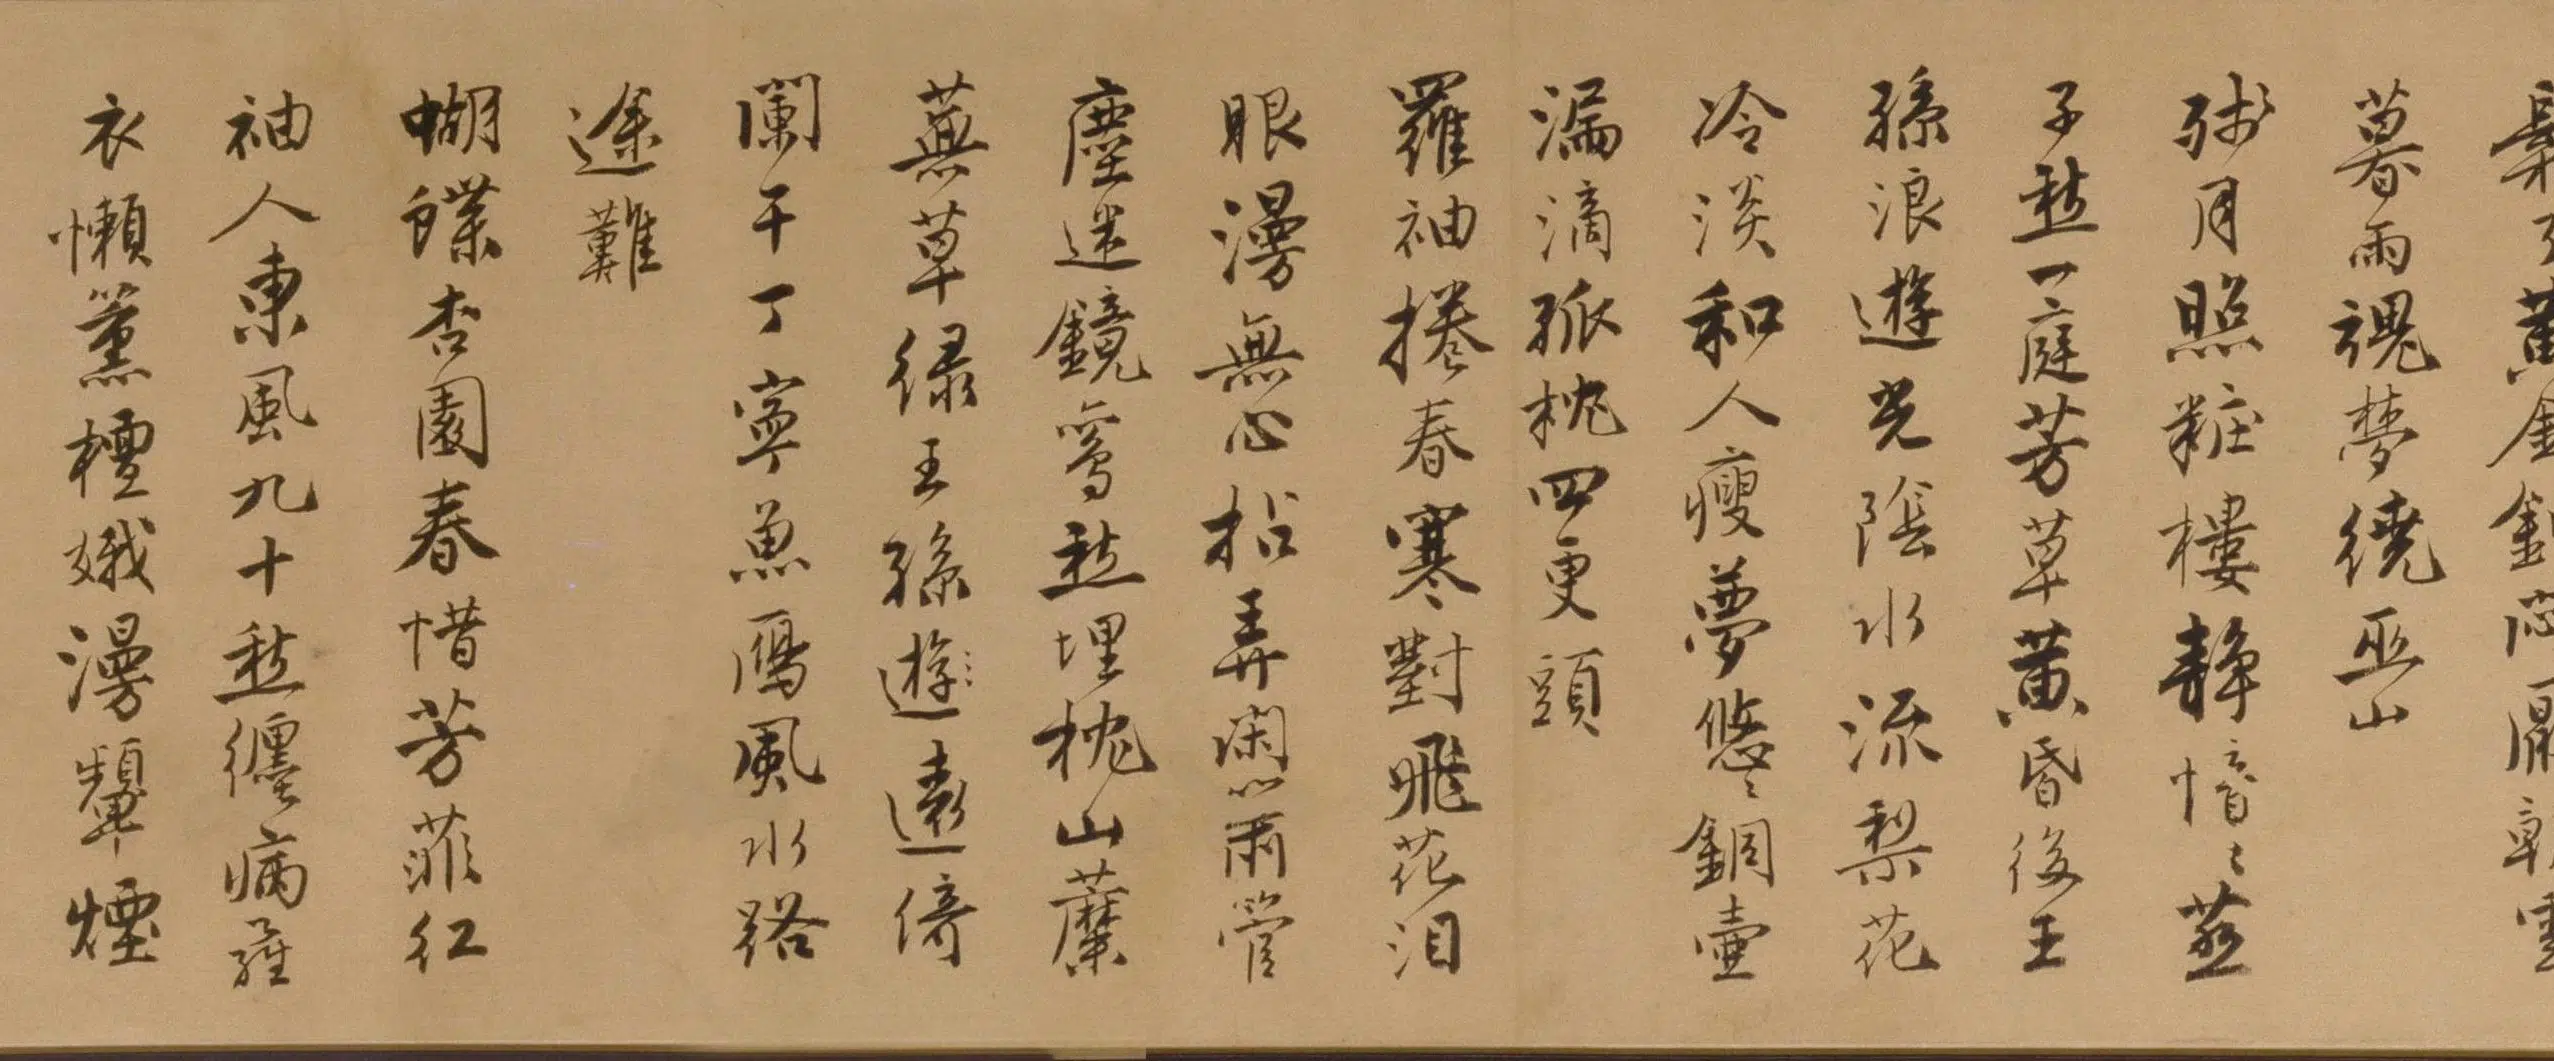 暮雨魂夢繞巫山
殘月照粧樓静愔〻蒸
子愁一庭芳草黄昏後王
孫浪遊光陰水流梨花
冷淡和人瘦夢悠〻銅壷
漏滴孤枕四更頭
羅袖捲春寒對飛花泪
眼漫無心拈弄閑𥿄管
塵迷鏡鸞愁埋枕山蘼
蕪草緑王孫遊遠倚
闌干丁寧魚鴈風水路
途難
蝴蝶杏園春惜芳菲紅
袖人東風九十愁纏病羅
衣懶薰檀娥漫顰煙